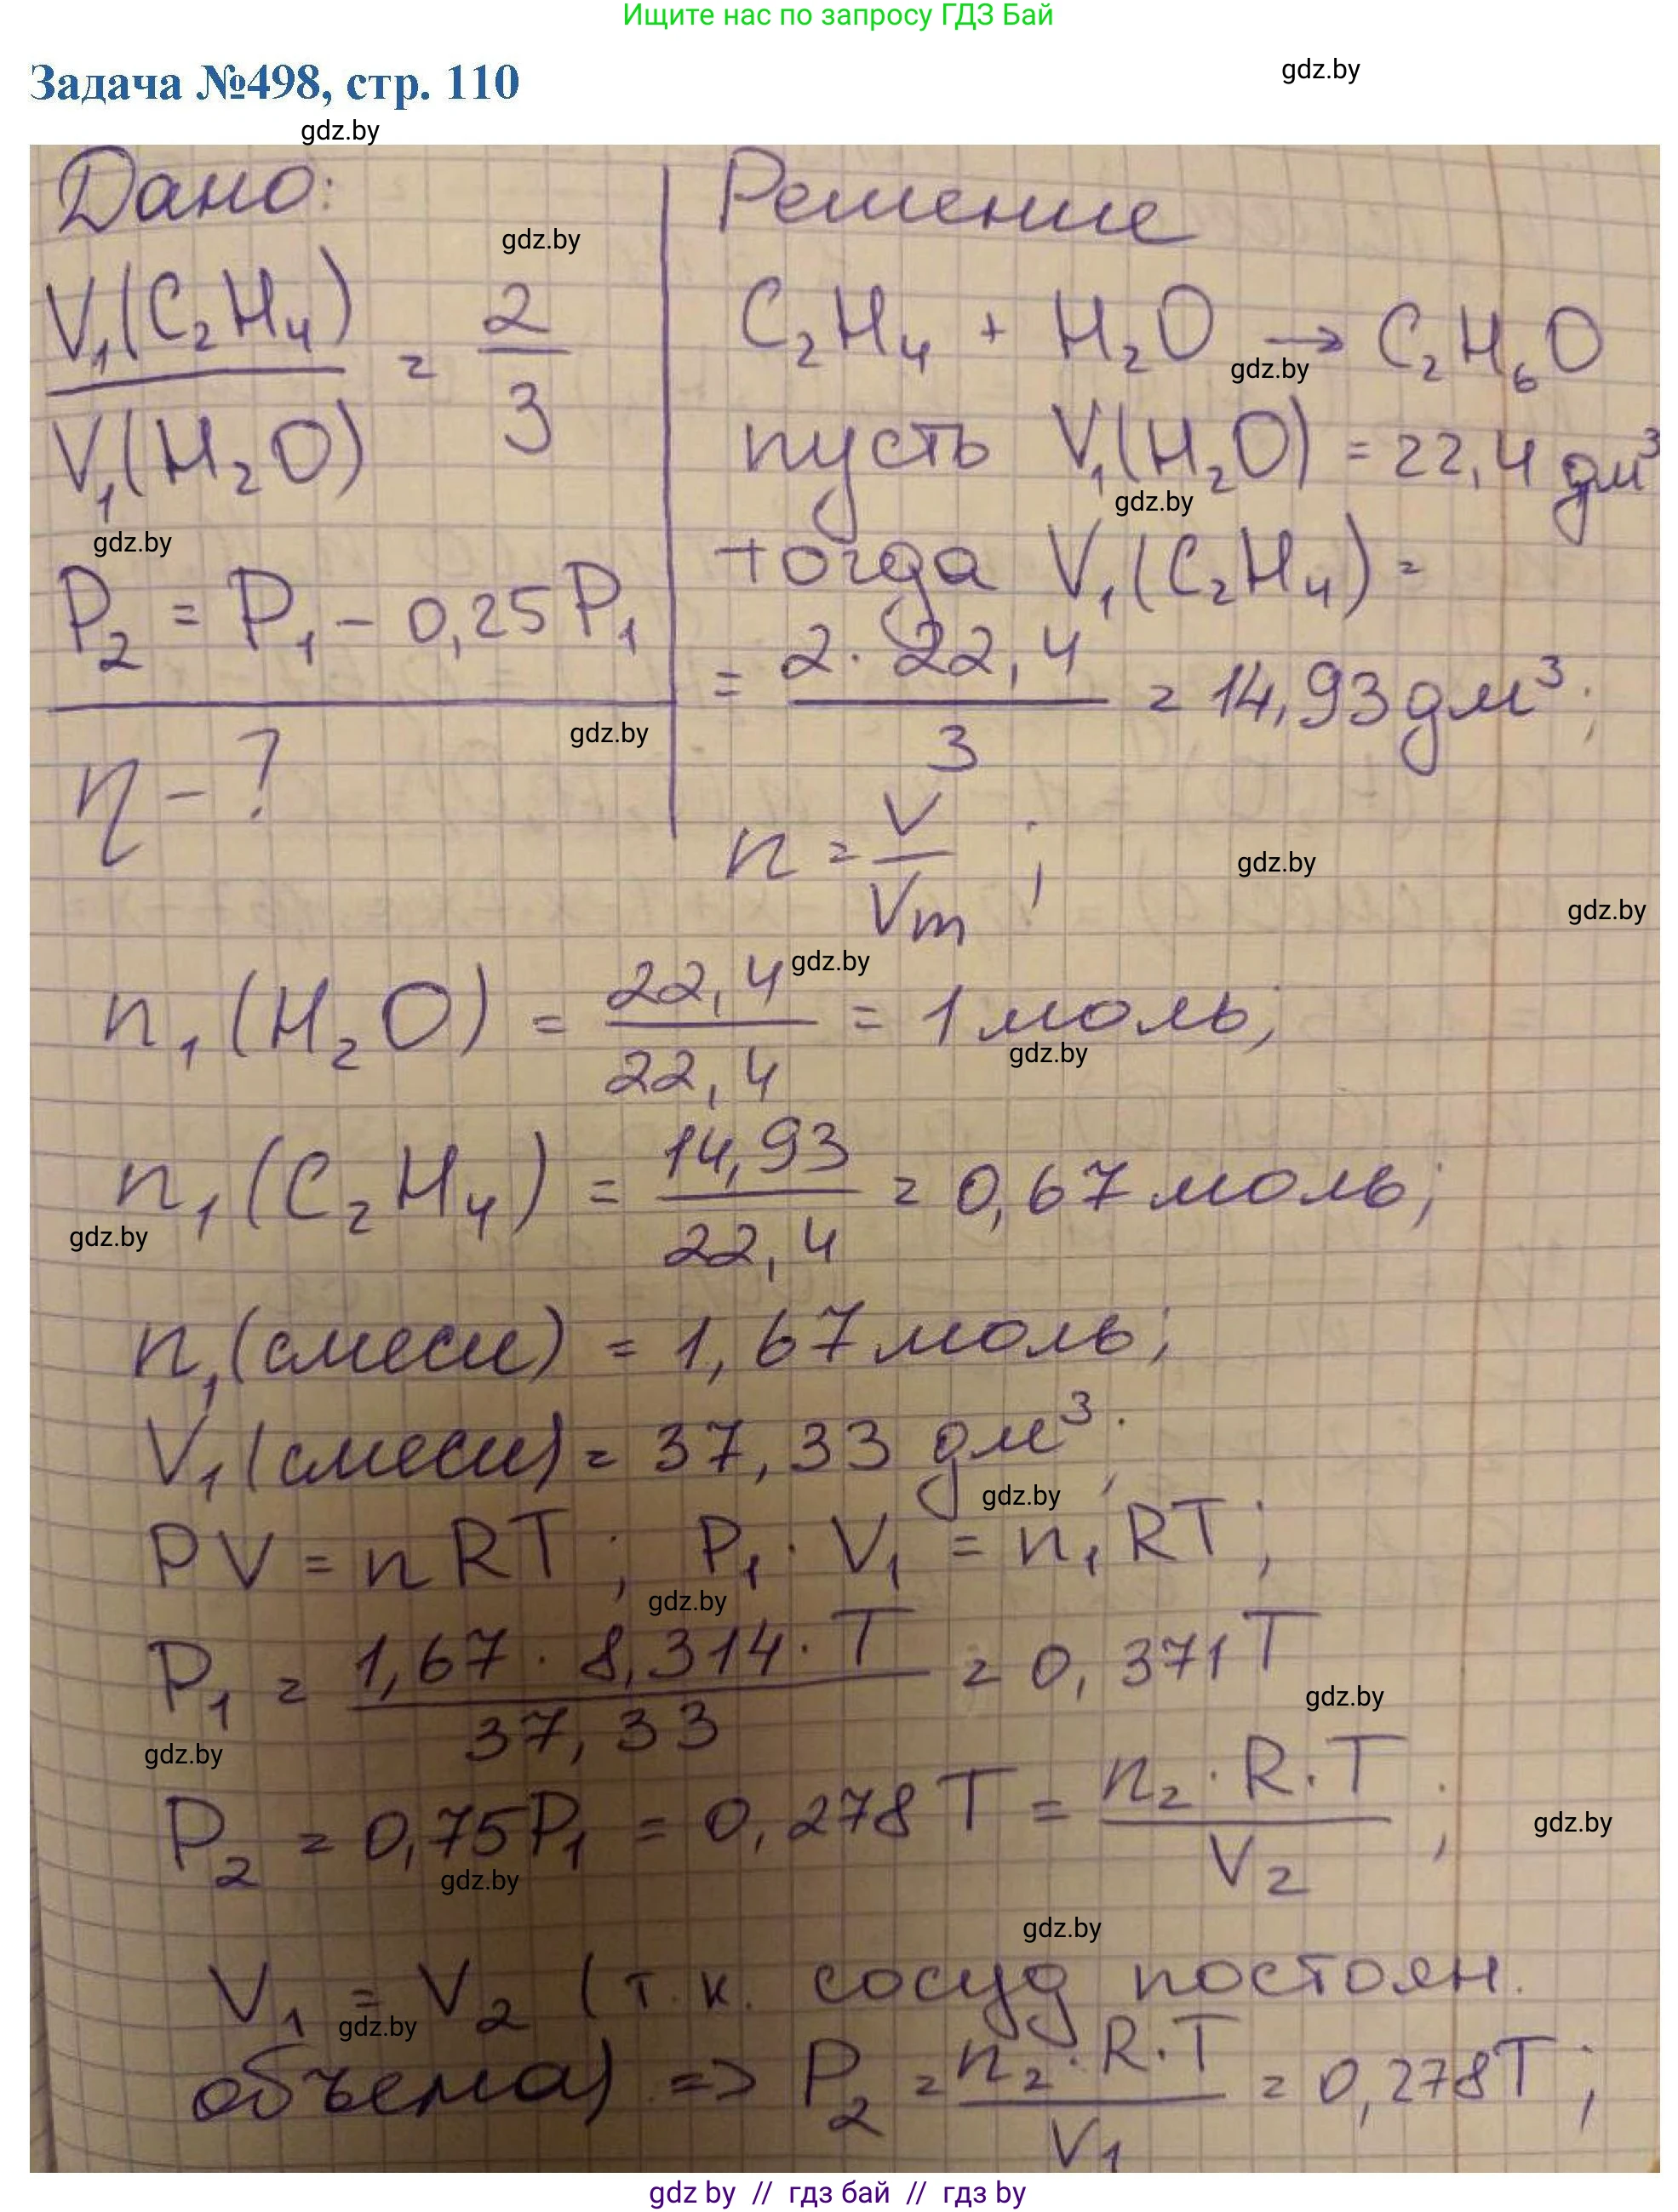 Ищите нас по запросу ГДЗ Бай
Задача №498, стр. 110
gdz.by
gdz.by
Дано:
Решение
gdz.by
V₁(C₂H₄) / V₁(H₂O) = 2/3
C₂H₄ + H₂O → C₂H₆O
gdz.by
пусть V₁(H₂O) = 22,4 дм³
gdz.by
gdz.by
тогда V₁(C₂H₄) =
P₂ = P₁ - 0,25P₁
= 2·22,4 / 3 = 14,93 дм³;
gdz.by
η - ?
n = V/Vm;
gdz.by
gdz.by
gdz.by
n₁(H₂O) = 22,4 / 22,4 = 1 моль;
gdz.by
n₁(C₂H₄) = 14,93 / 22,4 = 0,67 моль;
gdz.by
n₁(смеси) = 1,67 моль;
V₁(смеси) = 37,33 дм³;
gdz.by
PV = nRT; P₁·V₁ = n₁RT;
gdz.by
P₁ = 1,67·8,314·T / 37,33 = 0,371T
gdz.by
gdz.by
P₂ = 0,75P₁ = 0,278T = n₂·R·T / V₂;
gdz.by
gdz.by
gdz.by
V₁ = V₂ (т.к. сосуд постоян.
gdz.by
объема) => P₂ = n₂·R·T / V₁ = 0,278T;
gdz by // гдз бай // гдз by